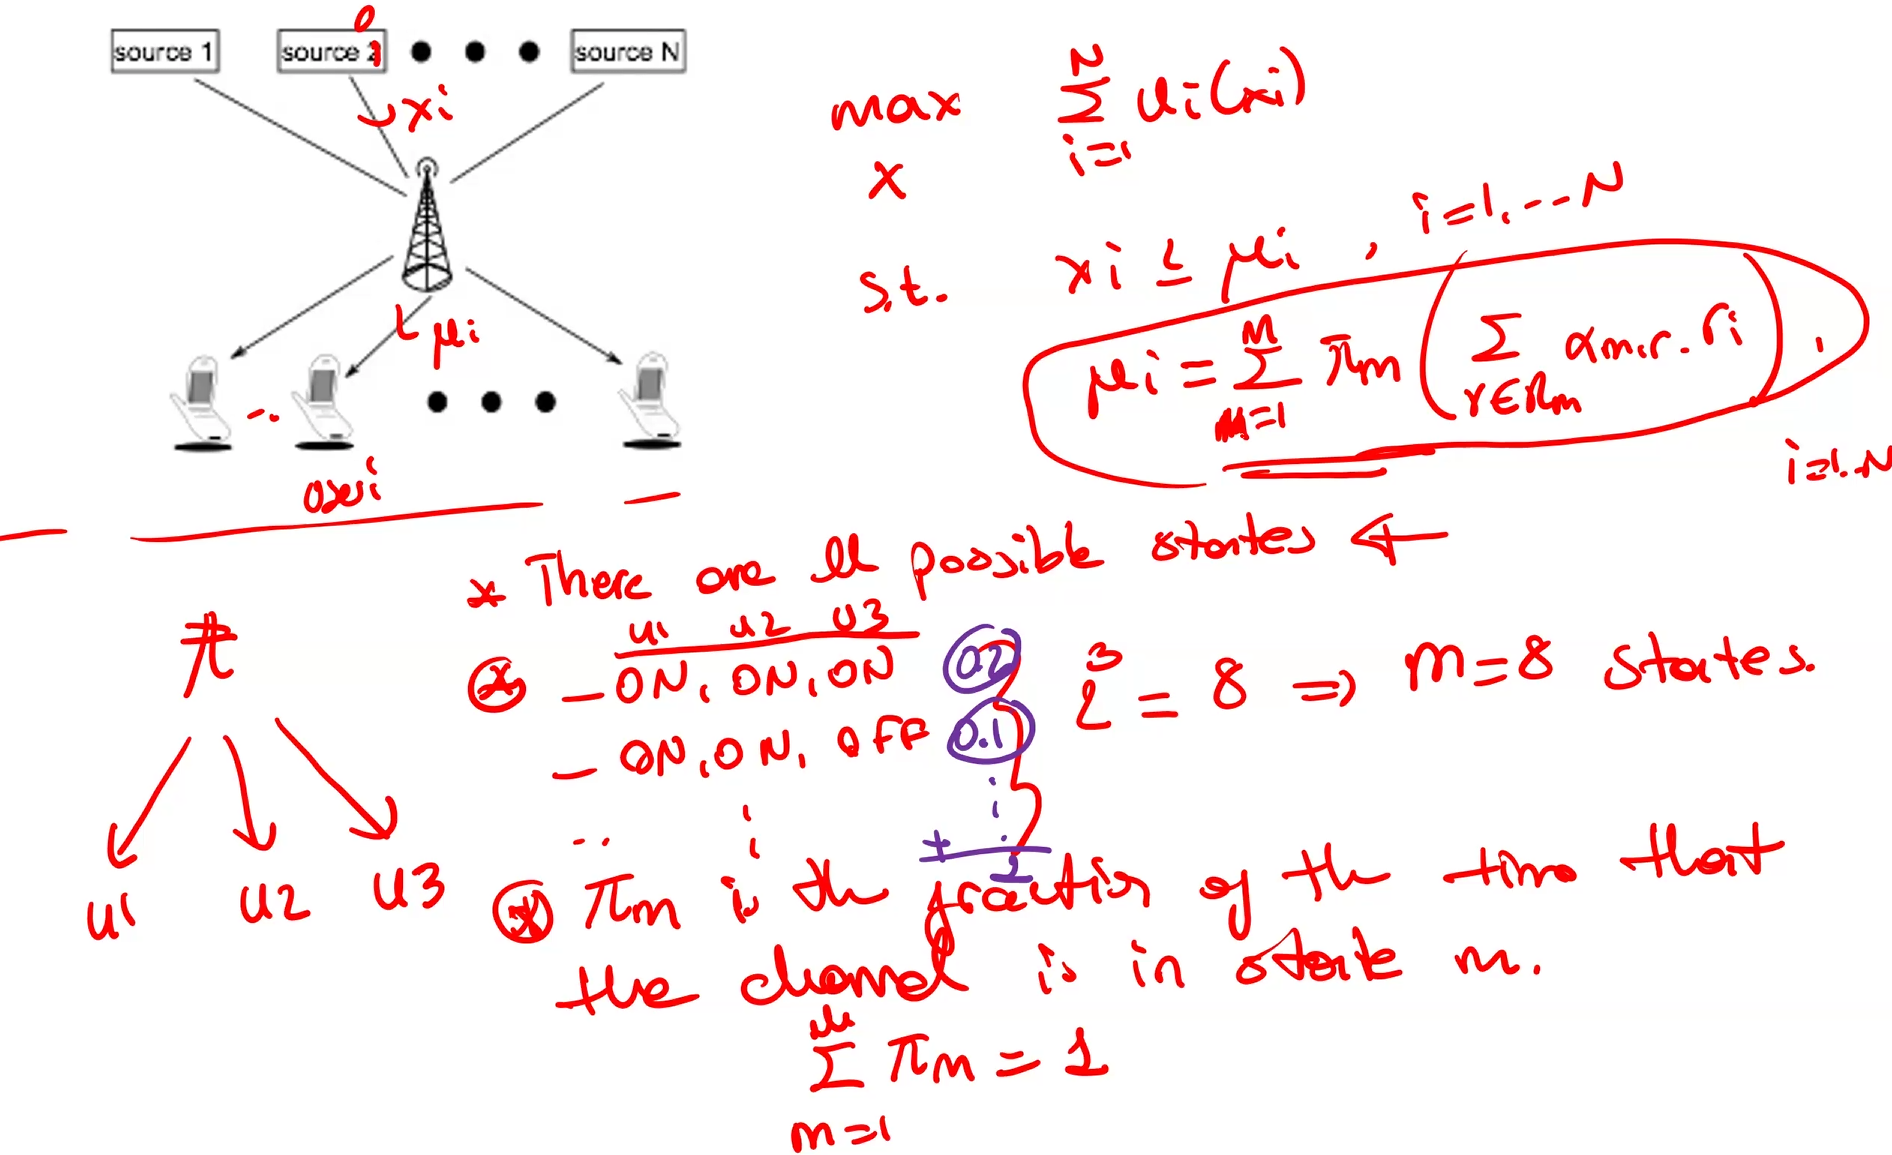 source 1 source 2 i source N
xi
μi
user i
max x Σ_{i=1}^{N} Ui(xi)
s.t. xi ≤ μi , i=1,...N
μi = Σ_{m=1}^{M} πm ( Σ_{r∈Rm} αm,r . ri ) , i=1..N
* There are M possible states ←
u1 u2 u3
* - ON, ON, ON 0.2 2^3 = 8 ⇒ m=8 states.
- ON, ON, OFF 0.1
+ 1
u1 u2 u3
* πm is the fraction of the time that
the channel is in state m.
Σ_{m=1}^{M} πm = 1